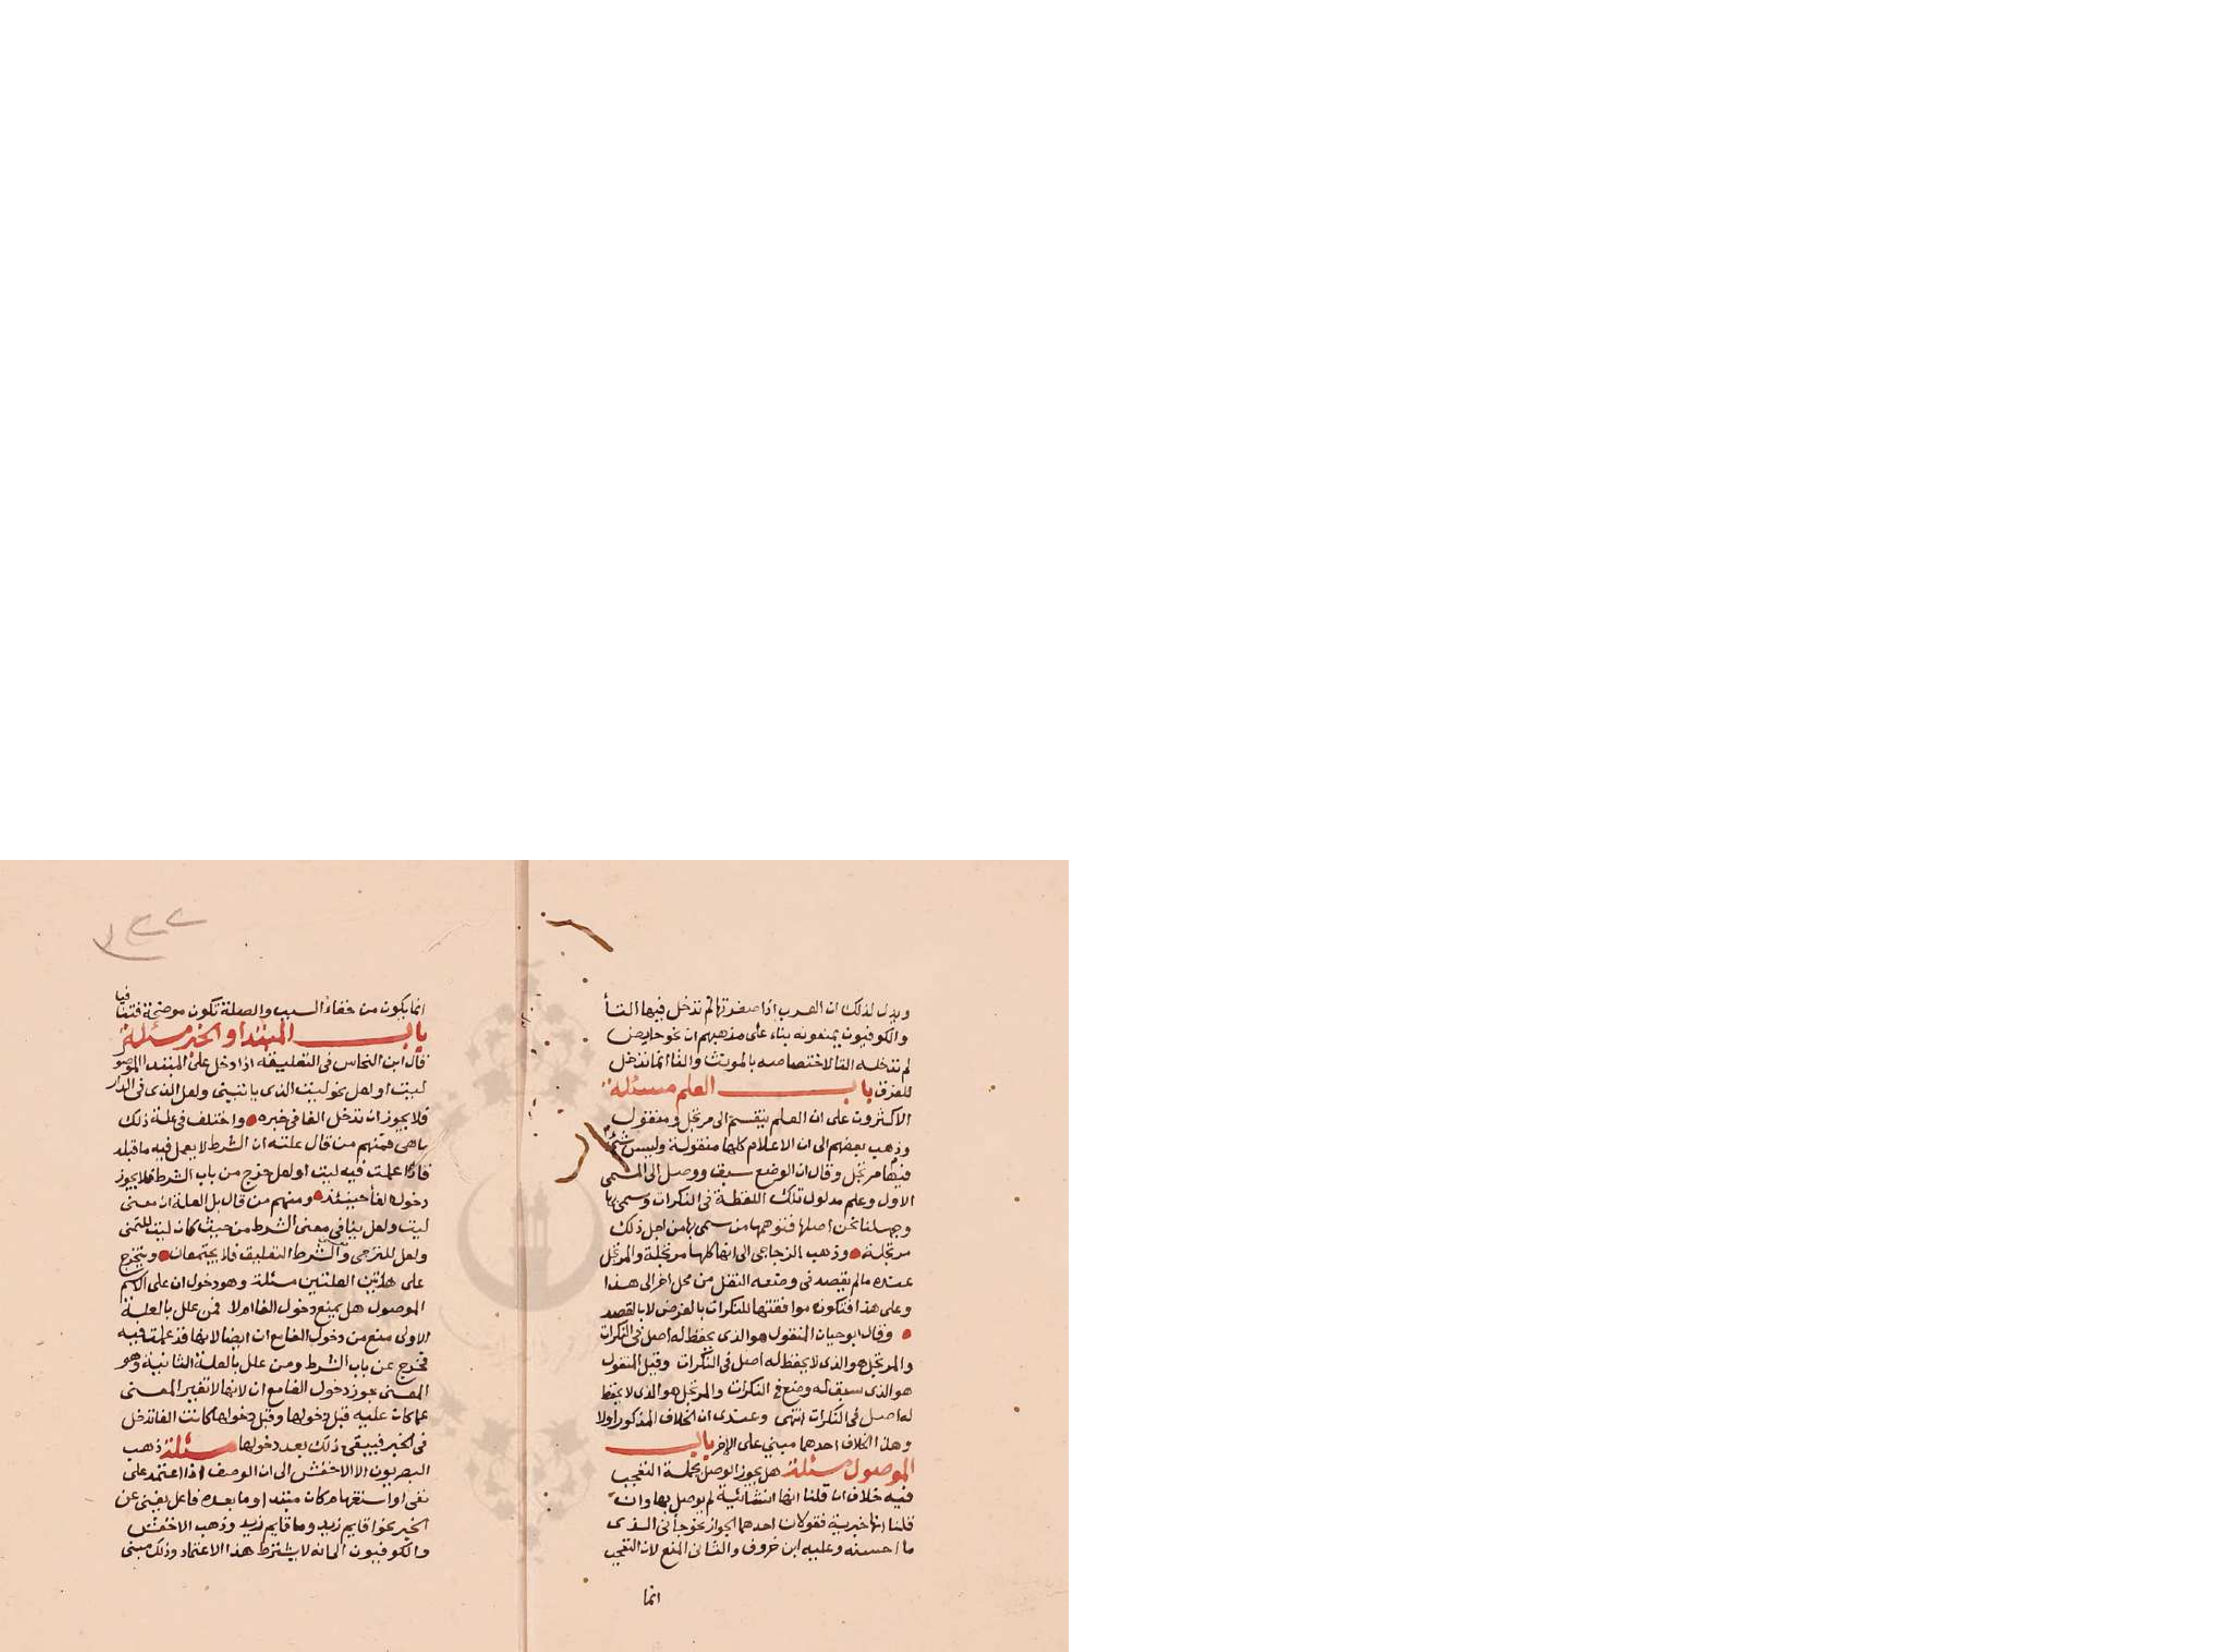 ويدل لذلك ان العرب اذا صغرتها لم تدخل فيها التأ
والكوفيون يمنعونه بناء على مذهبهم ان نحو حايض
لم تدخله التا لاختصاصه بالمونث والتا انما تدخل
للفرق باب العلم مسئلة
الاكثرون على ان العلم ينقسم الى مرتجل ومنقول
وذهب بعضهم الى ان الاعلام كلها منقولة وليس شئ
فيها مرتجل وقال ان الوضع سبق ووصل الى المسمى
الاول وعلم مدلول تلك اللفظة فى النكرات وسمى بها
وجهلنا نحن اصلها فتوهمها من سمى بها من اجل ذلك
مرتجلة وذهب الزجاجى الى انها كلها مرتجلة والمرتجل
عنده مالم يقصد فى وضعه النقل من محل اخر الى هذا
وعلى هذا فتكون موافقتها للنكرات بالعرض لا بالقصد
وقال ابو حيان المنقول هو الذى يحفظ له اصل فى النكرات
والمرتجل هو الذى لا يحفظ له اصل فى النكرات وقيل المنقول
هو الذى سبق له وضع فى النكرات والمرتجل هو الذى لا يحفظ
له اصل فى النكرات انتهى وعندى ان الخلاف المذكور اولا
وهذا الخلاف احدهما مبنى على الاخر باب
الموصول مسئلة هل يجوز الوصل بجملة التعجب
فيه خلاف ان قلنا انها انشائية لم يوصل بها وان
قلنا انها خبرية فقولان احدهما الجواز نحو جأنى الذى
ما احسنه وعليه ابن خروف والثانى المنع لان التعجب
انما
١٢٢
انما يكون من خفاء السبب والصلة تكون موضحة فتنافيا
باب المبتدا والخبر مسئلة
قال ابن النحاس فى التعليقة اذا دخل على المبتدا الموصو
ليت او لعل نحو ليت الذى ياتينى ولعل الذى فى الدار
فلا يجوز ان تدخل الفا فى خبره واختلف فى علة ذلك
ما هى فمنهم من قال علته ان الشرط لا يعمل فيه ما قبله
فاذا عملت فيه ليت او لعل خرج من باب الشرط فلا يجوز
دخول الفأ حينئذ ومنهم من قال بل العلة ان معنى
ليت ولعل ينافى معنى الشرط من حيث كان ليت للتمنى
ولعل للترجى ومعنى الشرط التعليق فلا يجتمعان ويتخرج
على هاتين العلتين مسئلة وهو دخول ان على الاسم
الموصول هل يمنع دخول الفا ام لا فمن علل بالعلة
الاولى منع من دخول الفا مع ان ايضا لانها قد عملت فيه
فخرج عن باب الشرط ومن علل بالعلة الثانية وهو
المعنى جوز دخول الفا مع ان لانها لا تغير المعنى
عما كان عليه قبل دخولها وقبل دخولها كانت الفا تدخل
فى الخبر فيبقى ذلك بعد دخولها مسئلة ذهب
البصريون الا الاخفش الى ان الوصف اذا اعتمد على
نفى او استفهام كان مبتدا وما بعده فاعل يغنى عن
الخبر نحو اقايم زيد وما قايم زيد وذهب الاخفش
والكوفيون الى انه لا يشترط هذا الاعتماد وذلك مبنى